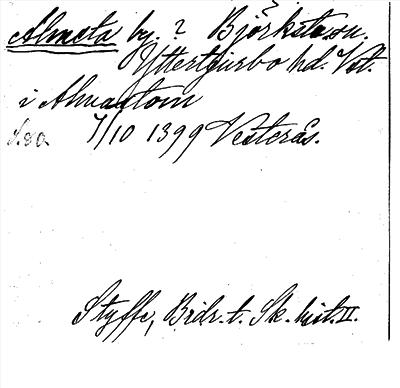 Almeta by. ? Björksta sn.
Yttertjurbo hd. Vstl.
i Almaatom
S. 80. 7/10 1399 Vesterås.
Styffe, Bidr. t. Sk. hist. II.